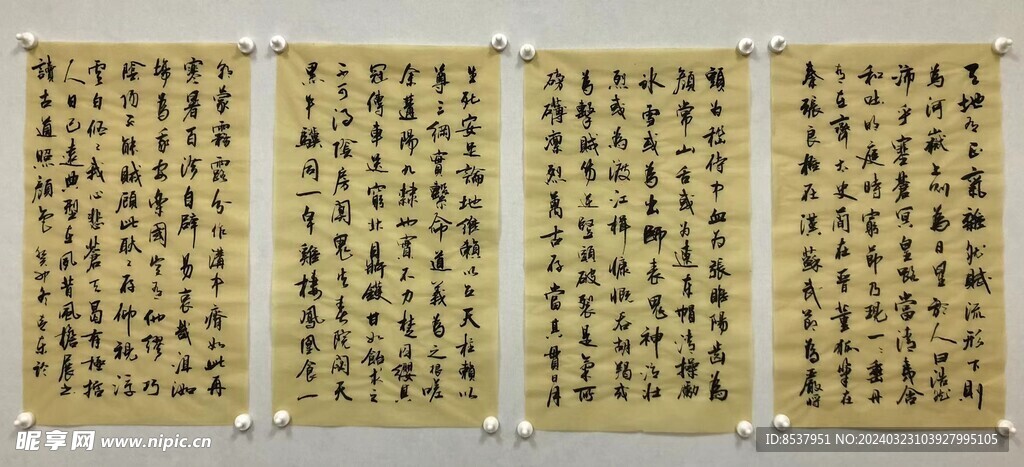 天地有正氣雜然賦流形下則
為河嶽上則為日星於人曰浩然
沛乎塞蒼冥皇路當清夷含
和吐明庭時窮節乃現一一垂丹
青在齊太史簡在晉董狐筆在
秦張良椎在漢蘇武節為嚴將
頭为嵇侍中血为張睢陽齒為
顏常山舌或为遼東帽清操勵
冰雪或為出師表鬼神泣壯
烈或為渡江楫慷慨吞胡羯或
為擊賊笏逆竪頭破裂是氣所
磅礴凜烈萬古存當其貫日月
生死安足論地維賴以立天柱賴以
尊三綱實繫命道義為之根嗟
余遘陽九隸也實不力楚囚纓其
冠傳車送窮北鼎鑊甘如飴求之
不可得陰房闃鬼火春院閟天
黑牛驥同一皂雞棲鳳凰食一
朝蒙霧露分作溝中瘠如此再
寒暑百沴自辟易哀哉沮洳
場為我安樂國豈有他繆巧
陰陽不能賊顧此耿々存仰視浮
雲白悠々我心悲蒼天曷有極哲
人日已遠典型在夙昔風檐展書
讀古道照顏色 癸卯冬
昵享网 www.nipic.cn
ID:8537951 NO:20240323103927995105